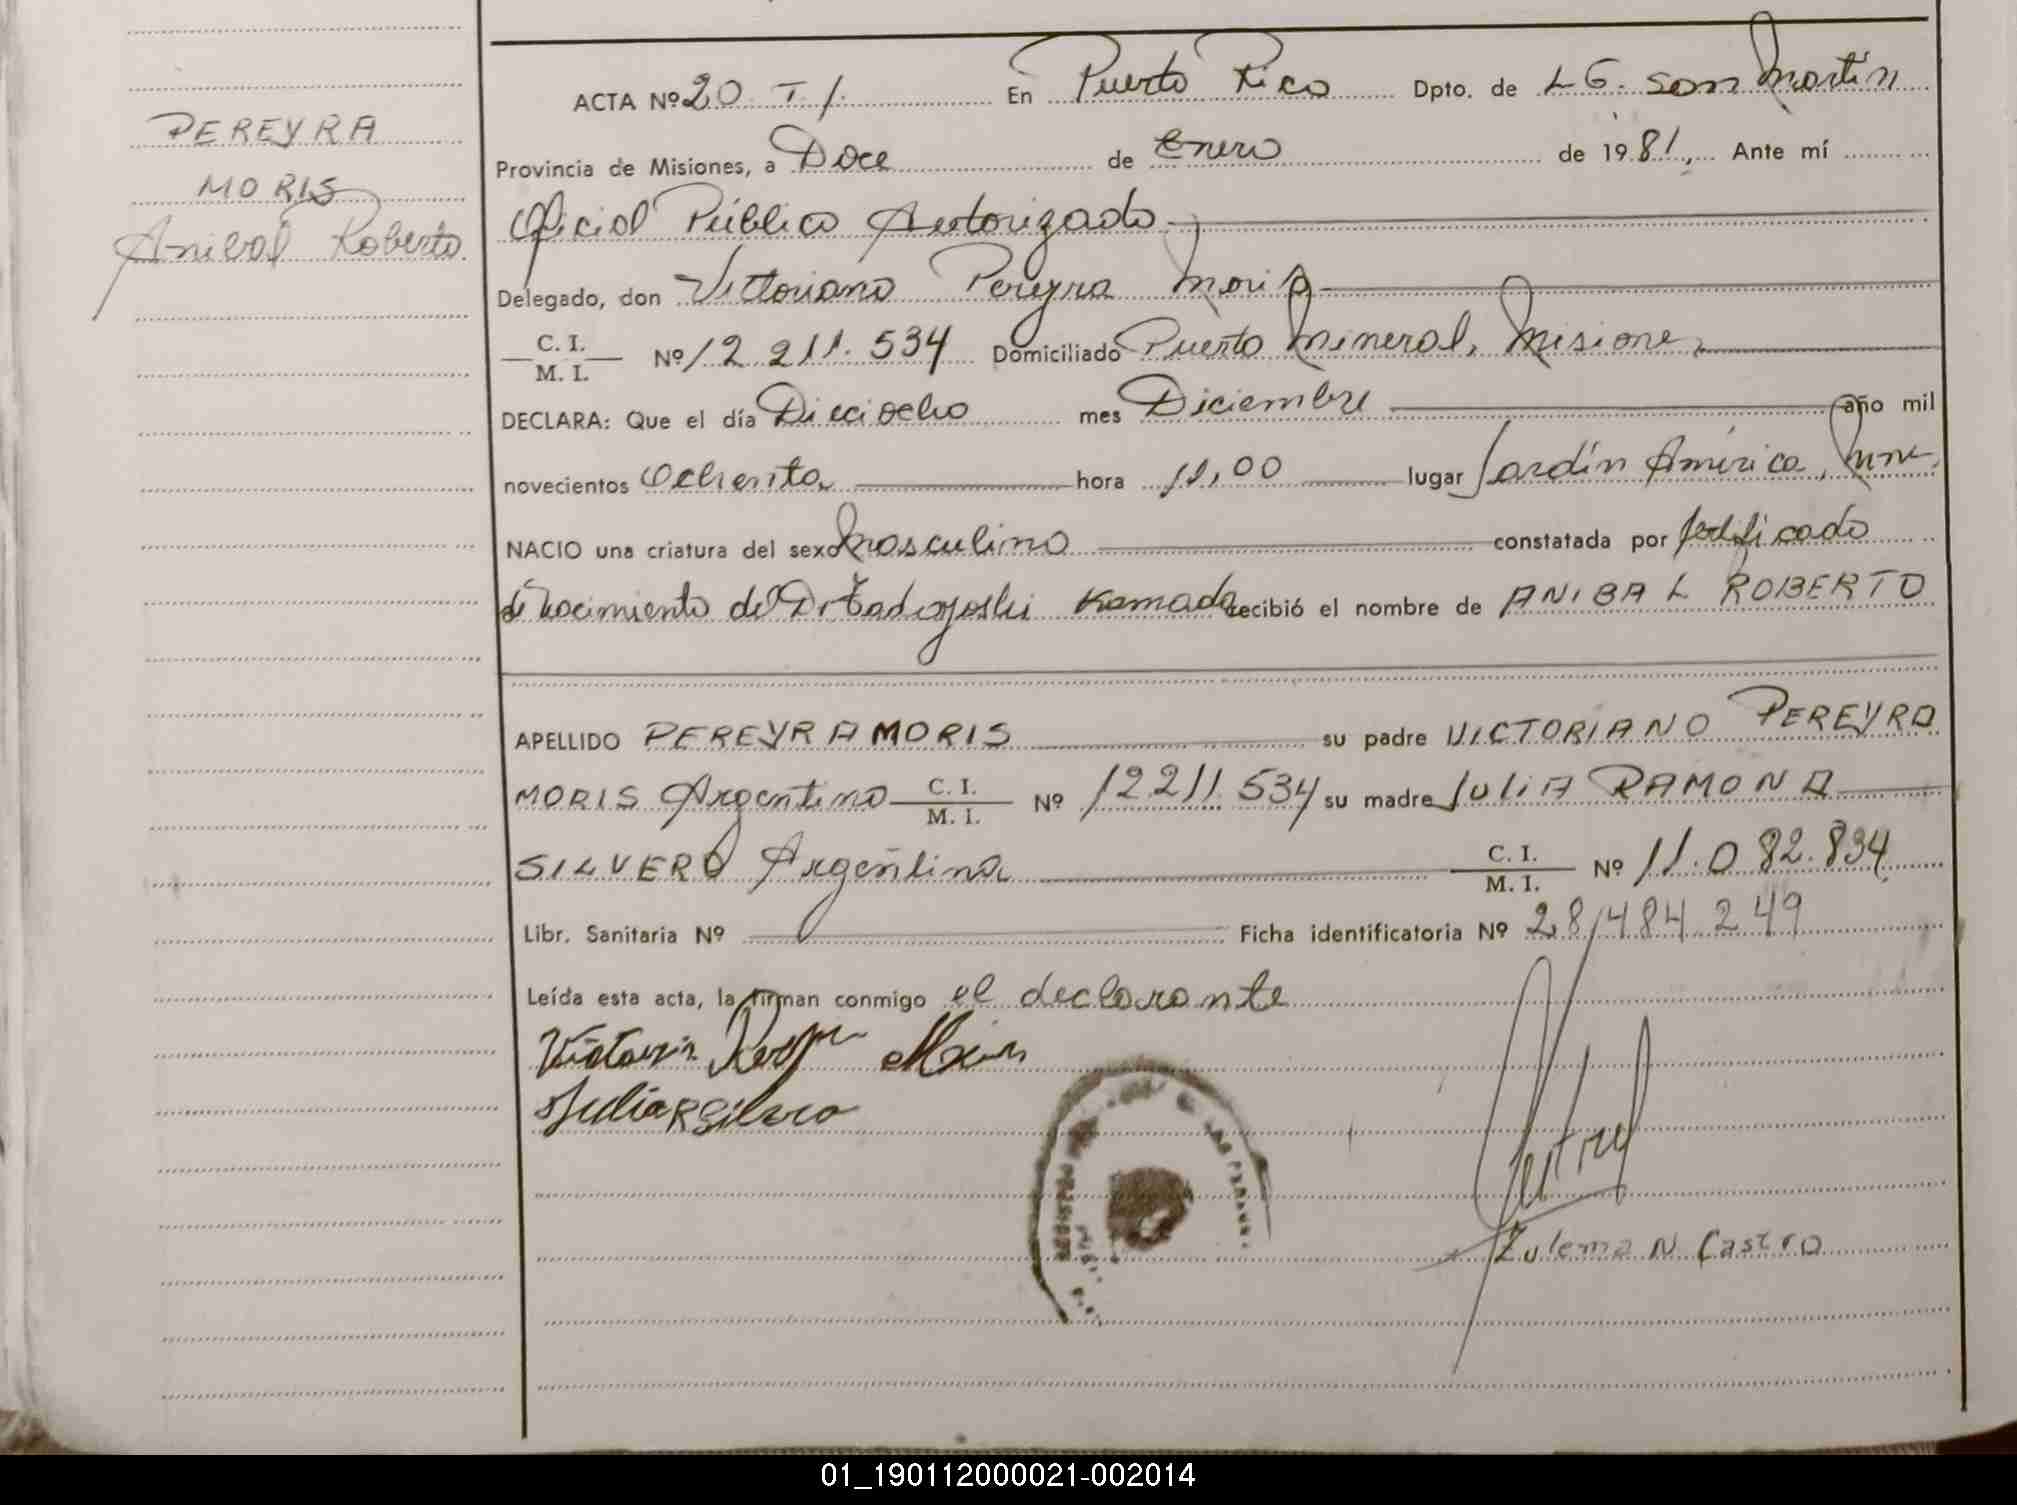 PEREYRA
MORIS
Anibal Roberto
ACTA Nº 20 T. 1. En Puerto Rico Dpto. de L G. San Martín
Provincia de Misiones, a Doce de Enero de 1981, Ante mí
Oficial Público Autorizado
Delegado, don Vittoriano Pereyra Moris
C. I.
M. I. Nº 12 211. 534 Domiciliado Puerto Mineral, Misiones
DECLARA: Que el día Dieciocho mes Diciembre año mil
novecientos Ochenta hora 11,00 lugar Jardín América, Mnes.
NACIO una criatura del sexo Masculino constatada por Certificado
de Nacimiento del Dr Tadayoshi Kamada recibió el nombre de ANIBAL ROBERTO
APELLIDO PEREYRA MORIS su padre VICTORIANO PEREYRA
MORIS Argentino C. I.
M. I. Nº 12211. 534 su madre JULIA RAMONA
SILVERO Argentina C. I.
M. I. Nº 11.082.834
Libr. Sanitaria Nº Ficha identificatoria Nº 28,484 249
Leída esta acta, la firman conmigo el declarante
Julia R Silvero
Zulema N Castro
01_190112000021-002014